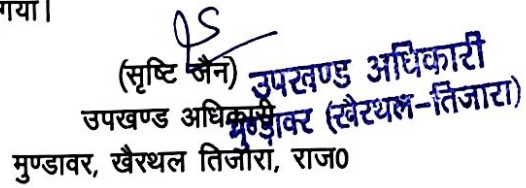 गया।
(सृष्टि जैन)
उपखण्ड अधिकारी
मुण्डावर, खैरथल तिजारा, राज0
उपखण्ड अधिकारी
मुण्डावर (खैरथल-तिजारा)